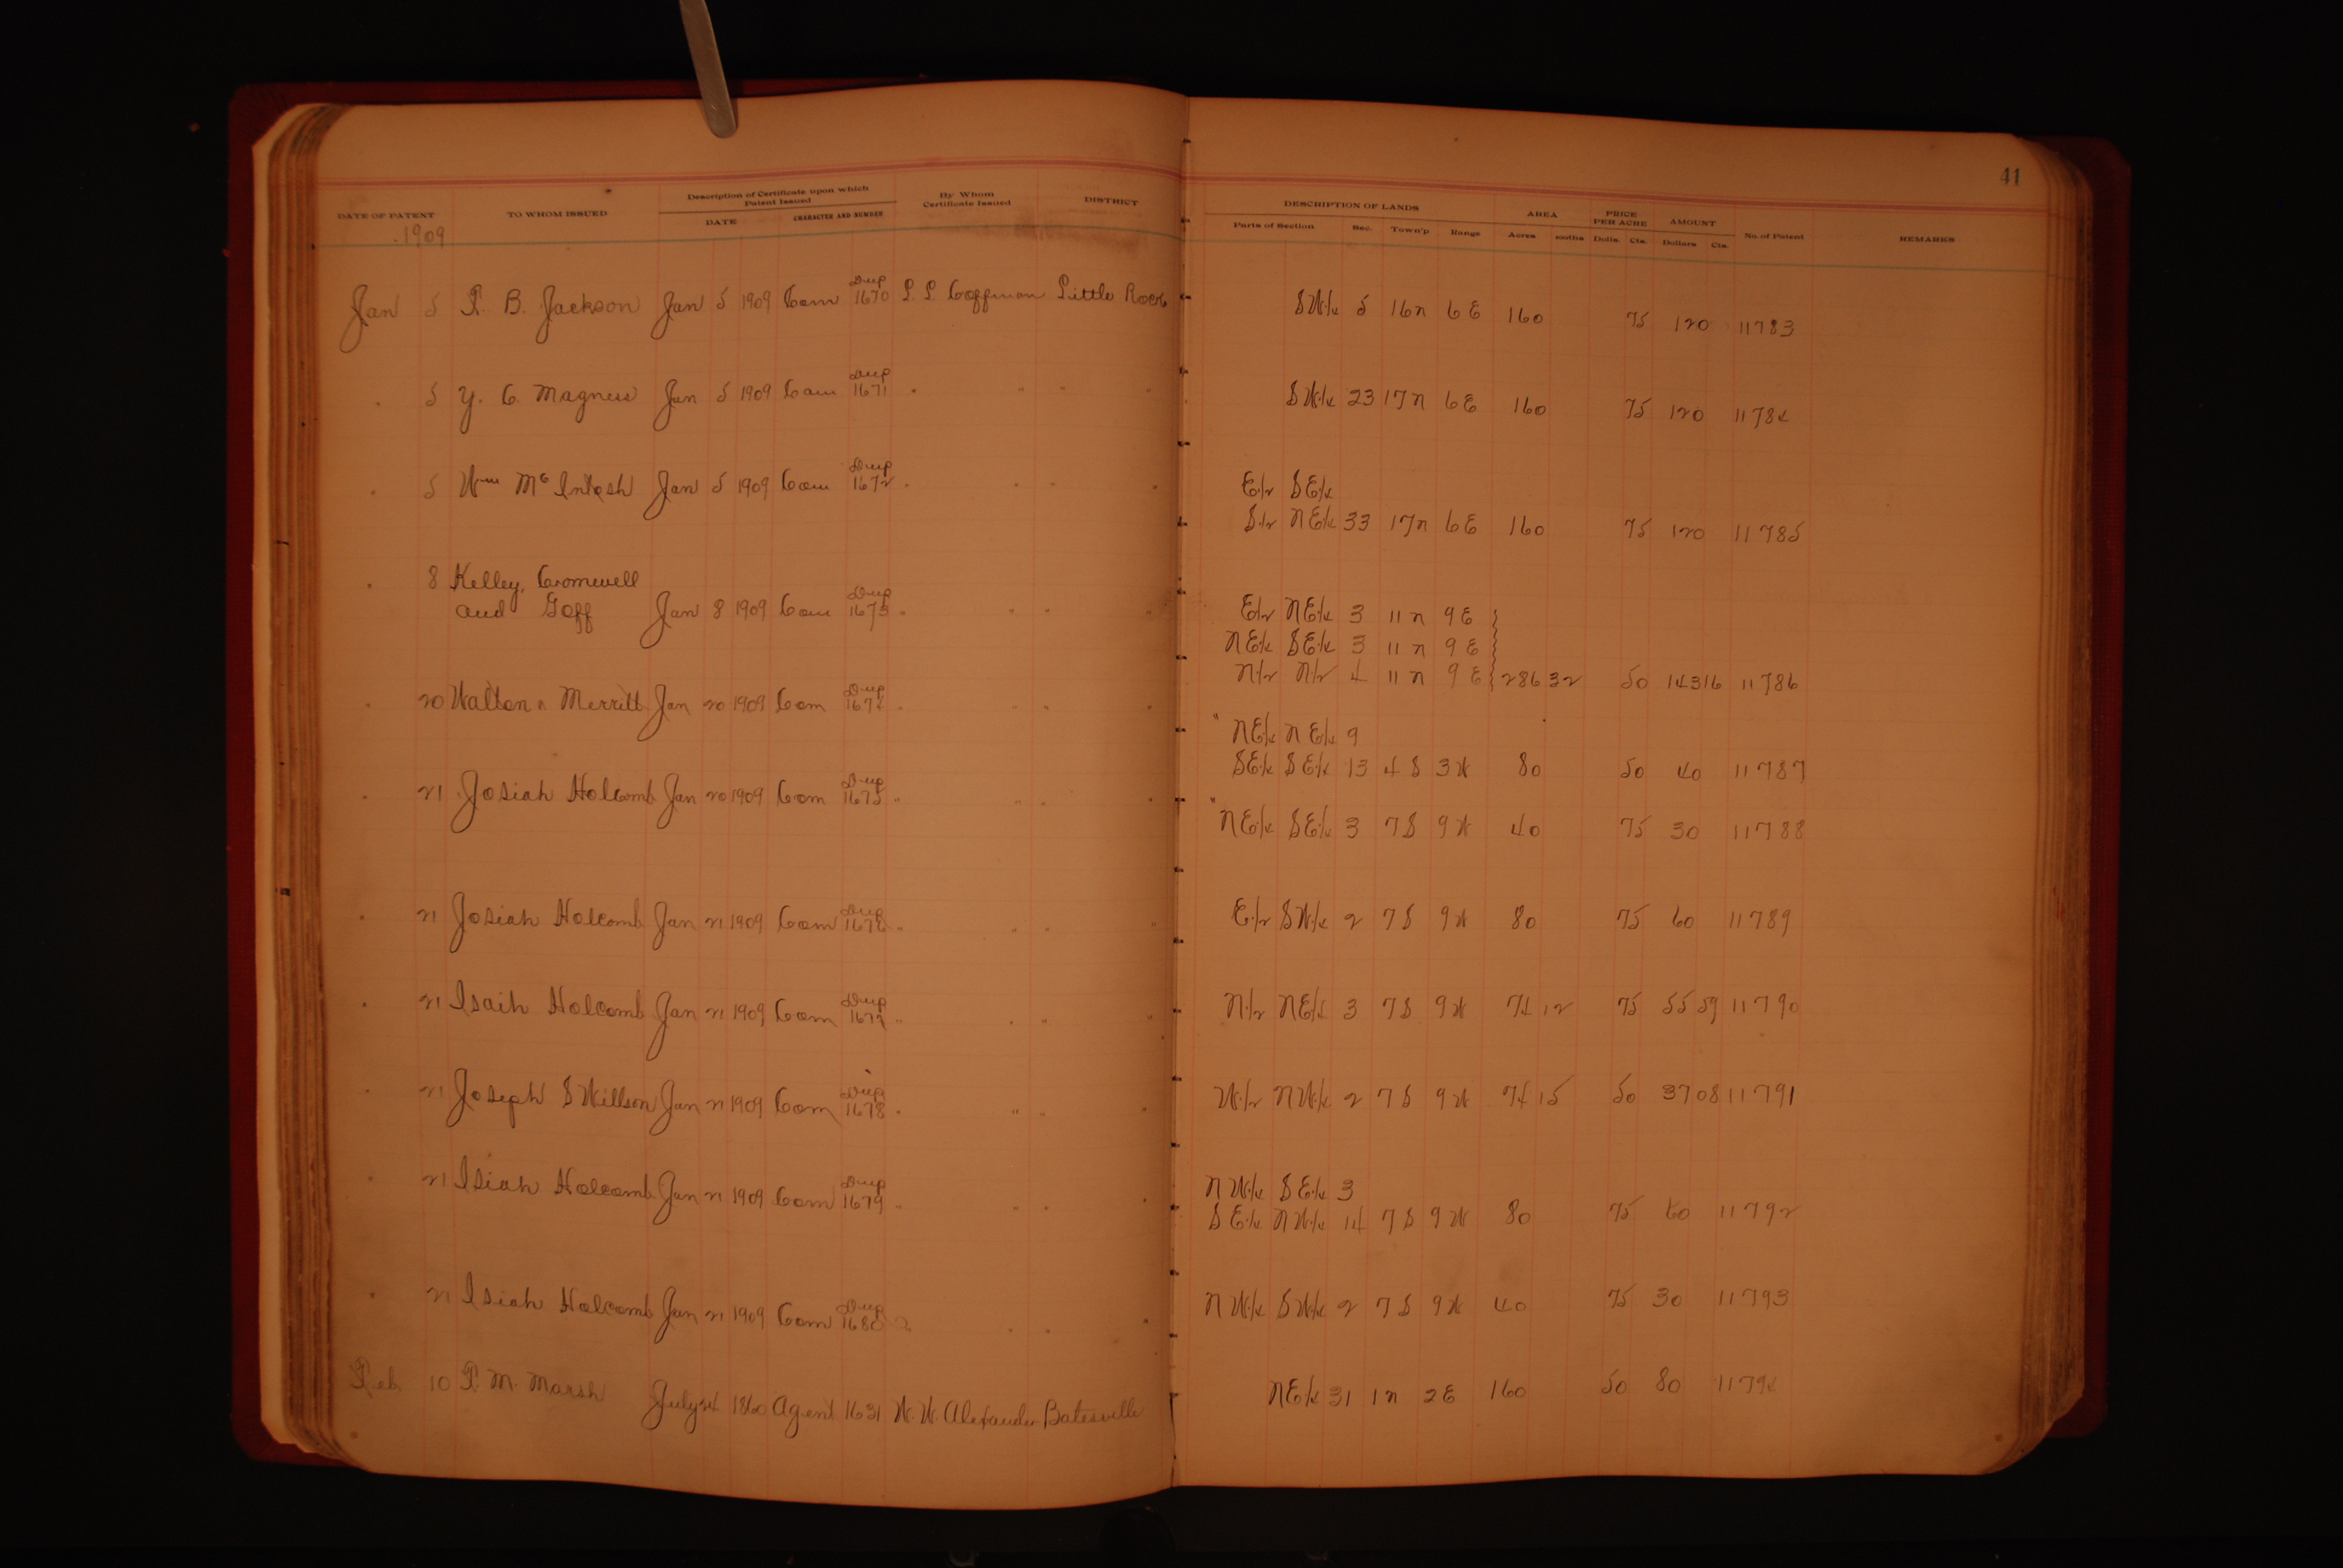 41
DATE OF PATENT TO WHOM ISSUED Description of Certificate upon which Patent Issued DATE CHARACTER AND NUMBER By Whom Certificate Issued DISTRICT DESCRIPTION OF LANDS Parts of Section Sec. Town'p Range AREA Acres 100ths PRICE PER ACRE Dolls. Cts. AMOUNT Dollars Cts. No. of Patent REMARKS
1909
Jan 5 B. Jackson Jan 5 1909 Com Dup 1670 L. L. Coffman Little Rock SW 1/4 5 16 n 6 E 160 75 120 11783
" 5 Y. C. Magness Jan 5 1909 Com Dup 1671 " " " " SW 1/4 23 17 n 6 E 160 75 120 11784
" 5 Wm McIntosh Jan 5 1909 Com Dup 1672 " " " " E 1/2 SE 1/4
S 1/2 NE 1/4 33 17 n 6 E 160 75 120 11785
" 8 Kelley, Cromwell
and Goff Jan 8 1909 Com Dup 1673 " " " " E 1/2 NE 1/4 3 11 n 9 E
NE 1/4 SE 1/4 3 11 n 9 E
N 1/2 N 1/2 4 11 n 9 E 286 32 50 143 16 11786
" 20 Walton & Merritt Jan 20 1909 Com Dup 1674 " " " " " NE 1/4 NE 1/4 9
SE 1/4 SE 1/4 13 4 S 3 W 80 50 40 11787
" 21 Josiah Holcomb Jan 20 1909 Com Dup 1675 " " " " " NE 1/4 SE 1/4 3 7 S 9 W 40 75 30 11788
" 21 Josiah Holcomb Jan 21 1909 Com Dup 1676 " " " " E 1/2 SW 1/4 2 7 S 9 W 80 75 60 11789
" 21 Isaih Holcomb Jan 21 1909 Com Dup 1677 " " " " N 1/2 NE 1/4 3 7 S 9 W 74 12 75 55 59 11790
" 21 Joseph S Willson Jan 21 1909 Com Dup 1678 " " " " W 1/2 NW 1/4 2 7 S 9 W 74 15 50 37 08 11791
" 21 Isiah Holcomb Jan 21 1909 Com Dup 1679 " " " " NW 1/4 SE 1/4 3
SE 1/4 NW 1/4 14 7 S 9 W 80 75 60 11792
" 21 Isiah Holcomb Jan 21 1909 Com Dup 1680 " " " " NW 1/4 SW 1/4 2 7 S 9 W 40 75 30 11793
Feb 10 M. Marsh July 24 1860 Agent 1631 W. W. Alexander Batesville NE 1/4 31 1 n 2 E 160 50 80 11794